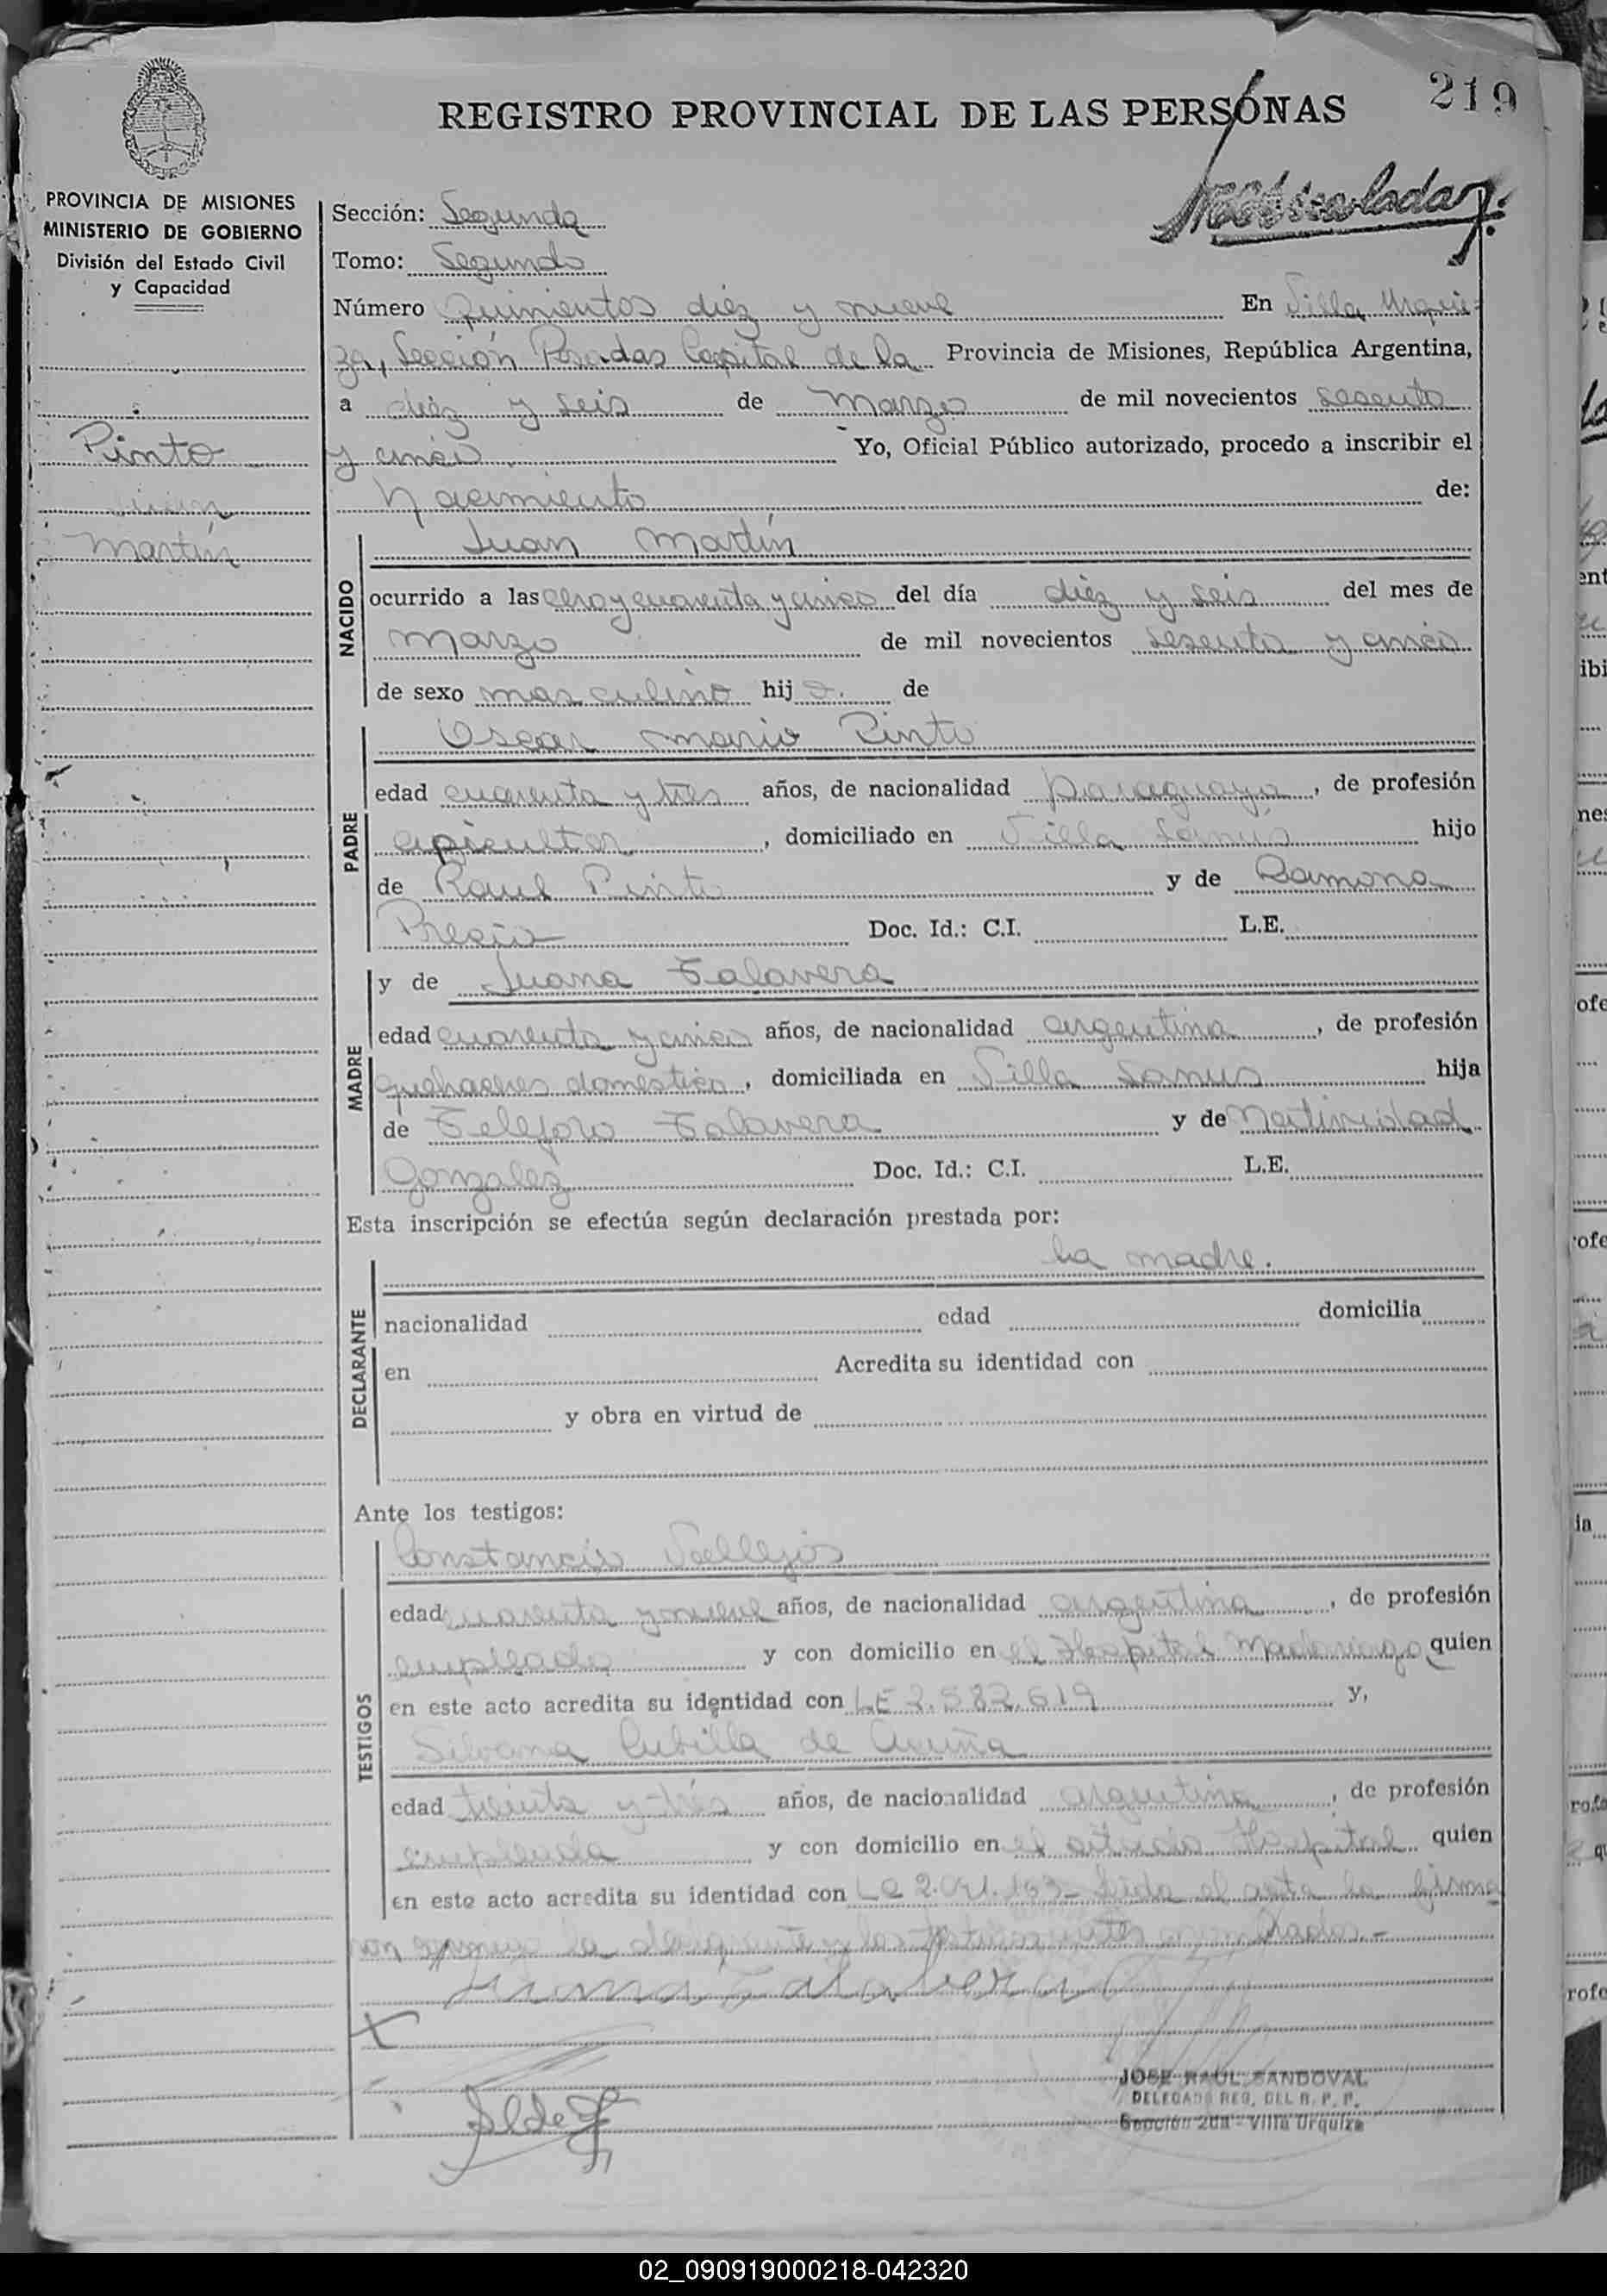 219
REGISTRO PROVINCIAL DE LAS PERSONAS
PROVINCIA DE MISIONES
MINISTERIO DE GOBIERNO
División del Estado Civil
y Capacidad
Pinto
Juan
Martín
Sección: Segunda
Tomo: Segundo
Número Quinientos diéz y nueve En Villa Urquie-
za, Sección Posadas Capital de la Provincia de Misiones, República Argentina,
a diéz y seis de Marzo de mil novecientos sesenta
y cinco. Yo, Oficial Público autorizado, procedo a inscribir el
Nacimiento de:
NACIDO
Juan Martín
ocurrido a las cero y cuarenta y cinco del día diéz y seis del mes de
Marzo de mil novecientos sesenta y cinco
de sexo masculino hijo. de
PADRE
Oscar Mario Pinto
edad cuarenta y tres años, de nacionalidad paraguaya, de profesión
apicultor, domiciliado en Villa Lanús hijo
de Raul Pinto y de Ramona
Doc. Id.: C.I. L.E.
MADRE
y de Juana Talavera
edad cuarenta y cinco años, de nacionalidad argentina, de profesión
quehaceres domestico, domiciliada en Villa Lanus hija
de Telesforo Talavera y de Natividad
Gonzalez Doc. Id.: C.I. L.E.
Esta inscripción se efectúa según declaración prestada por:
DECLARANTE
La madre.
nacionalidad edad domicilia
en Acredita su identidad con
y obra en virtud de
Ante los testigos:
TESTIGOS
Constancio Vallejos
edad cuarenta y nueve años, de nacionalidad argentina, de profesión
empleado y con domicilio en el Hospital Madariaga quien
en este acto acredita su identidad con LE 2.582.619 y,
Silvana Cubilla de Acuña
edad treinta y trés años, de nacionalidad argentina, de profesión
empleada y con domicilio en el citado Hospital quien
en este acto acredita su identidad con LC 2.091.163- Leida el acta la firma
Juana Talavera
JOSE RAUL SANDOVAL
DELEGADO REG. DEL R. P. P.
Sección 2da - Villa Urquiza
02_090919000218-042320